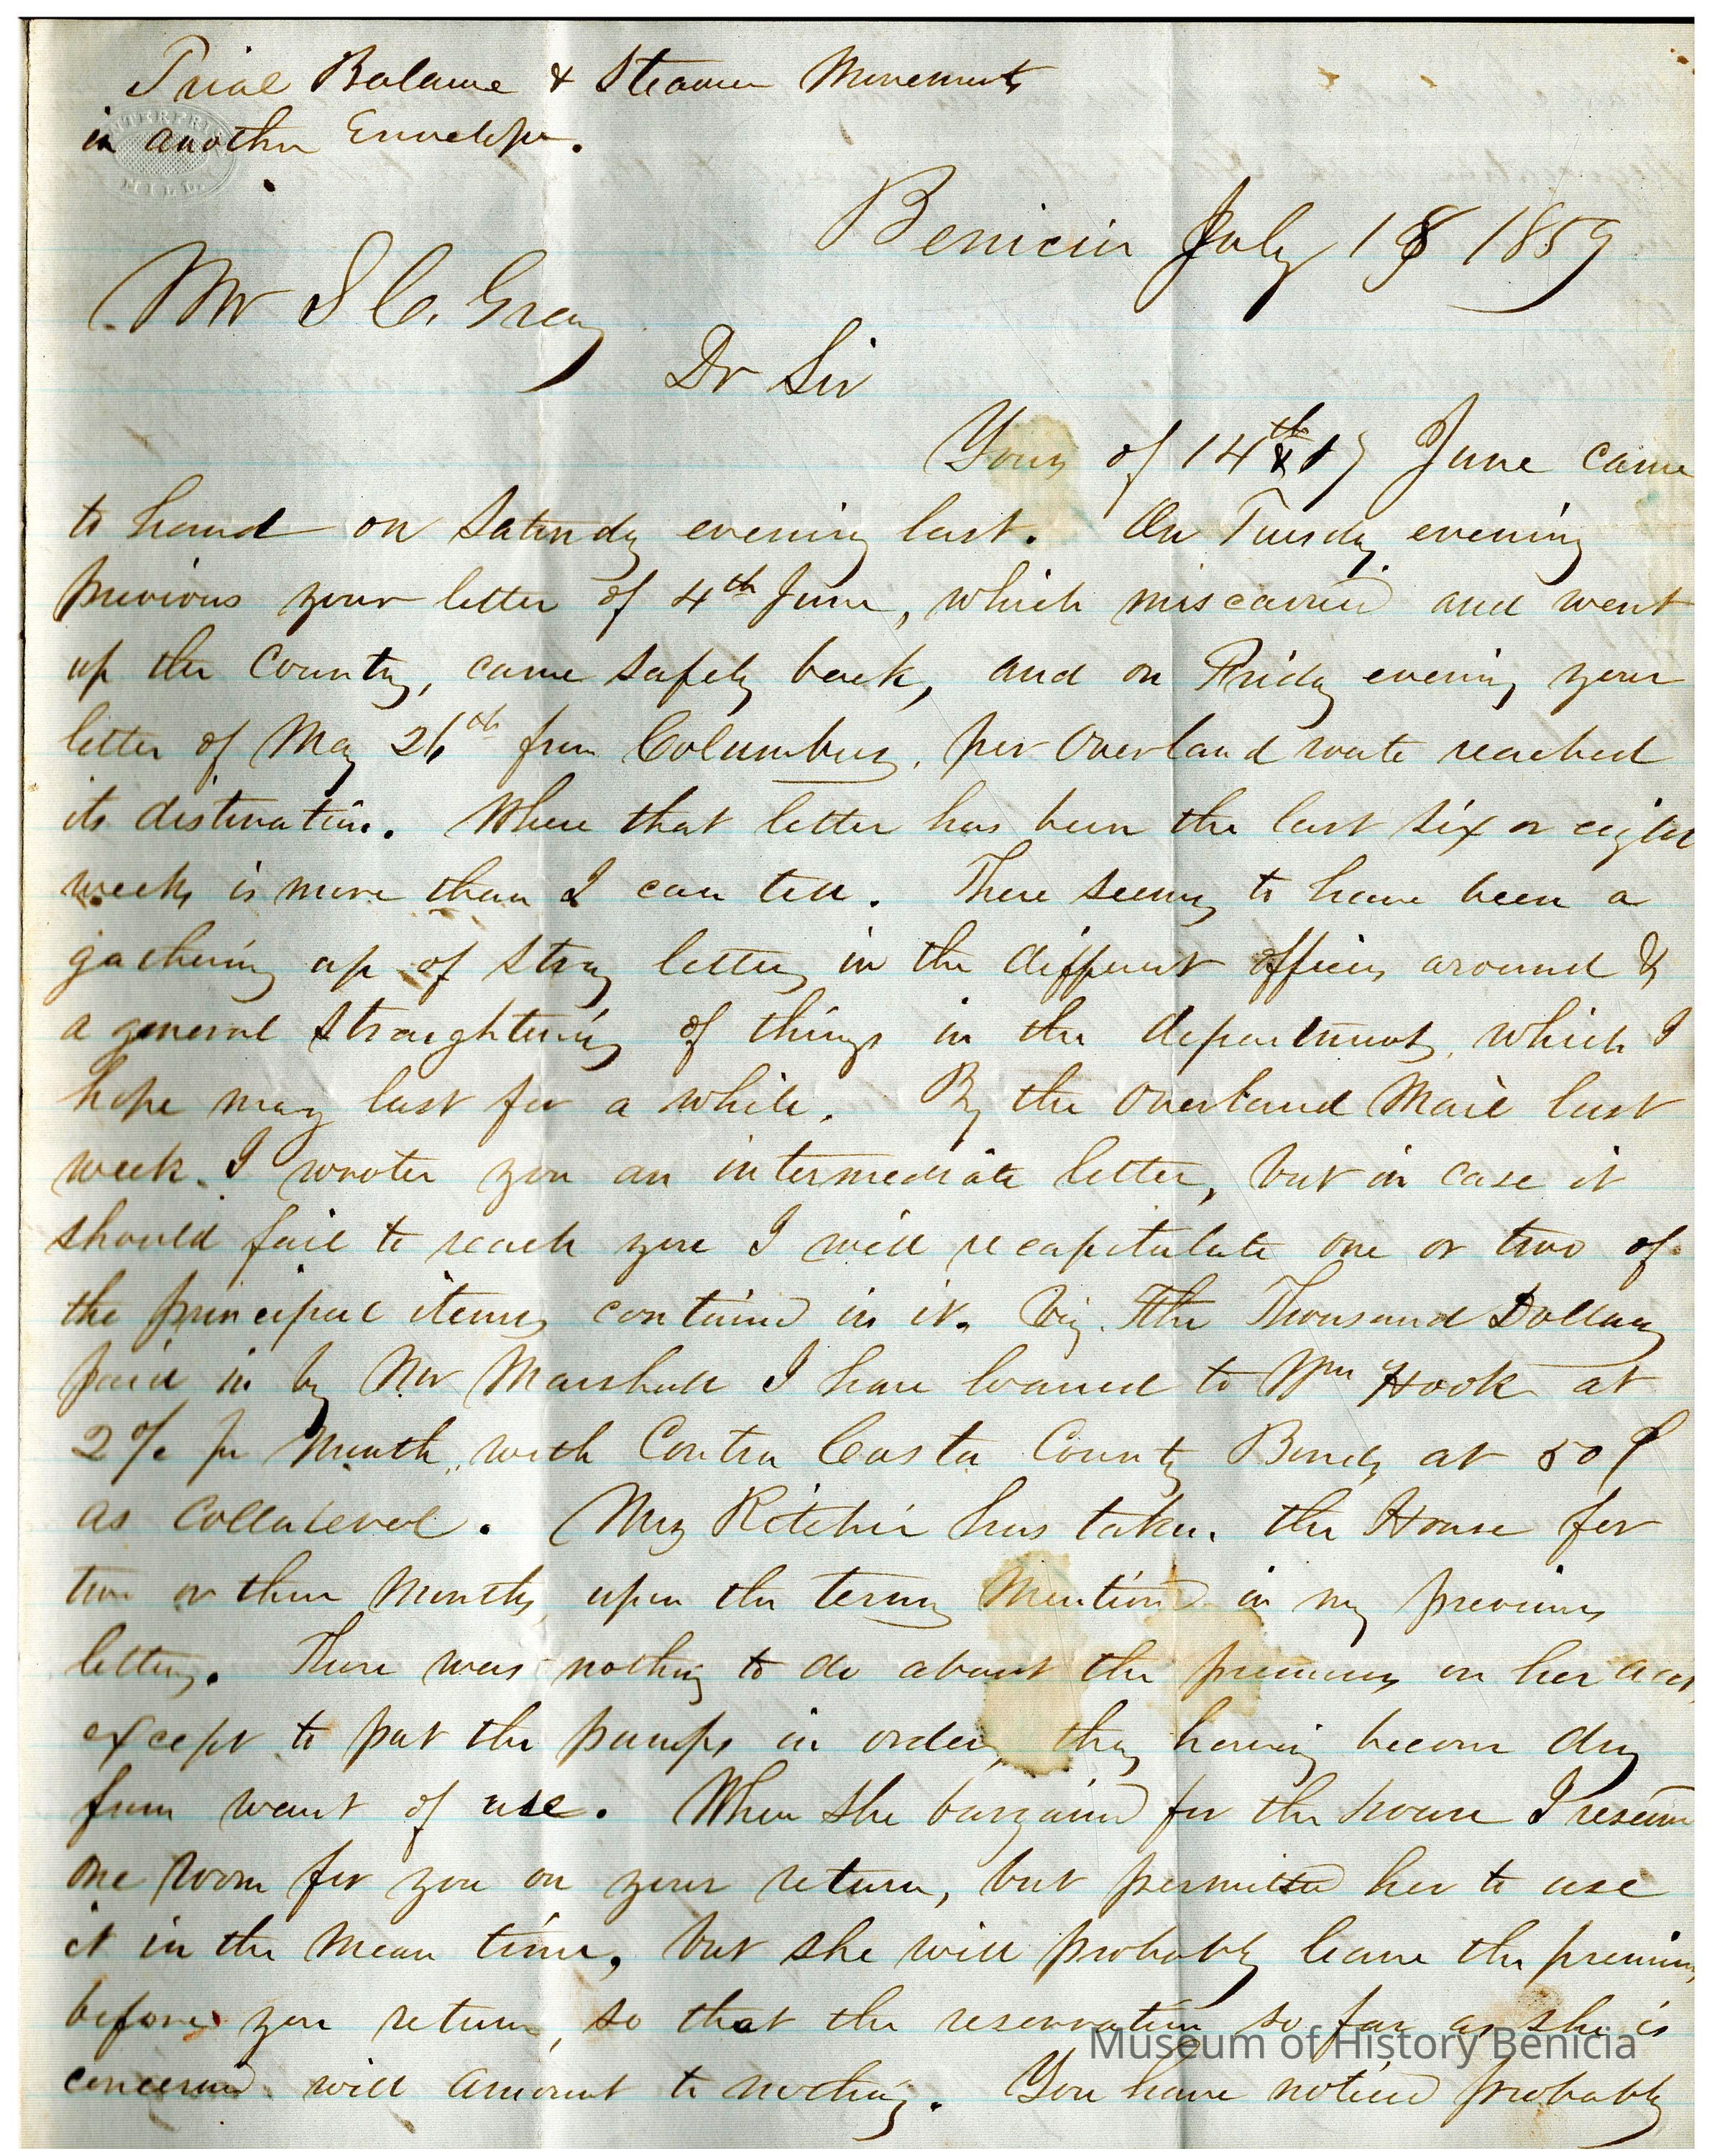 Trial Balance & Steamer Movements
in another Envelope.
ENTERPRISE
MILL
Benicia July 18 1859
Mr S C. Gray
Dr Sir
Yours of 14th & 17 June came
to hand on Saturday evening last. On Tuesday evening
previous your letter of 4th June, which miscarried and went
up the Country, came safely back, and on Friday evening your
letter of May 26th from Columbus, per Overland route reached
its distination. Where that letter has been the last six or eight
weeks is more than I can tell. There seems to have been a
gathering up of stray letters in the different offices around &
a general straightening of things in the departments, which I
hope may last for a while. By the Overland Mail last
week I wrote you an intermediate letter, but in case it
should fail to reach you I will recapitulate one or two of
the principal items contained in it. Viz. The Thousand Dollars
paid in by Mr Marshall I have loaned to Wm Hook at
2% pr Month, with Contra Costa County Bonds at 50¢
as Collateral. Mrs Ritchie has taken the House for
two or three Months, upon the terms Mentioned in my previous
letters. There was nothing to do about the premises on her acct
except to put the pumps in order, they having become dry
from want of use. When she bargained for the house I reserved
one room for you on your return, but permitted her to use
it in the mean time, but she will probably leave the premises
before you return, so that the reservation so far as she is
concerned will amount to nothing. You have noticed probably
Museum of History Benicia